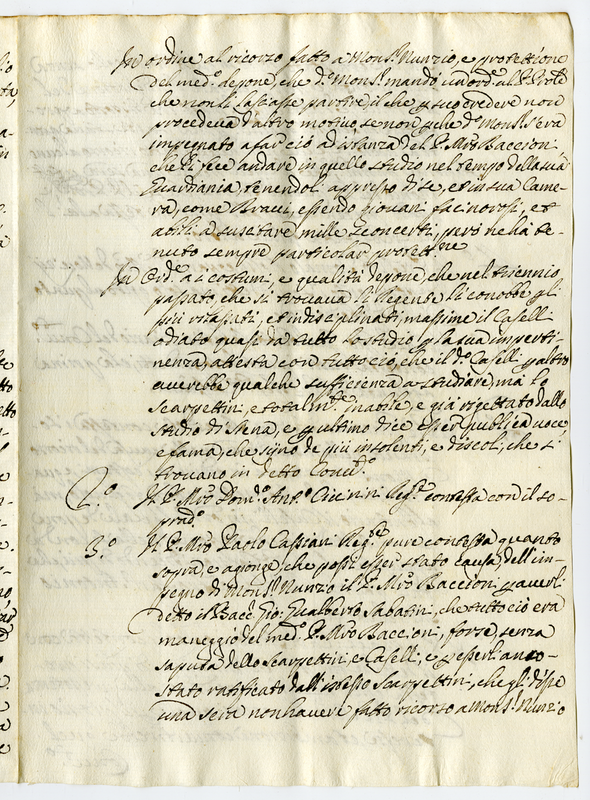 In ordine al ricorzo fatto a Mons.r Nunzio, e protettione
del med.o depone, che d.o Mons.r mandò un ord.e al P. Prôle
che non li lasciasse partire, il che p suo credere non
procedeva d'altro motivo se non pche d.o Mons.r s'era
impegnato a far ciò ad istanza del P. Mro Baccioni
che li fece andare in quello studio nel tempo della sua
Guardiania, tenendoli appresso di se, et in sua Came-
ra, come Bravi, essendo giovani facinorosi, et
abili a suscitare mille sconcerti, però ne ha te-
nuto sempre particolar protett.ne
In Ord.e a i costumi, e qualità depone, che nel triennio
passato, che si trovava li Regente li conobbe gli
più rilasciati, et indisciplinati, massime il Caselli
odiato quasi da tutto lo studio p la sua imperti-
nenza, attesta con tutto ciò, che il d.o Caselli p altro
averebbe qualche sufficienza a studiare, ma lo
Scarpettini, è total.te inabile, e già rigettato dallo
studio di Siena, e p ultimo dice esser publica voce,
e fama, che siino de più insolenti, e discoli, che si
trovano in detto Conv.to
2.o Il P. Mro Dom.o Ant.o Ciccinini Reg.te contesta con il so-
prad.o
3.o Il P. Mro Paolo Cassiani Reg.te pure contesta quanto
sopra, e agionge, che possi esser stato causa dell'im-
pegno di Mons.r Nunzio il P. Mro Baccioni p averli
detto il Bacc. Gio. Gualberto Sabatini, che tutto ciò era
maneggio del med.o P. Mro Baccioni, forse, senza
saputa dello Scarpettini, e Caselli, e p esserli anco-
stato ratificato dall'istesso Scarpettini, che gli disse
una sera non haver fatto ricorso a Mons.r Nunzio